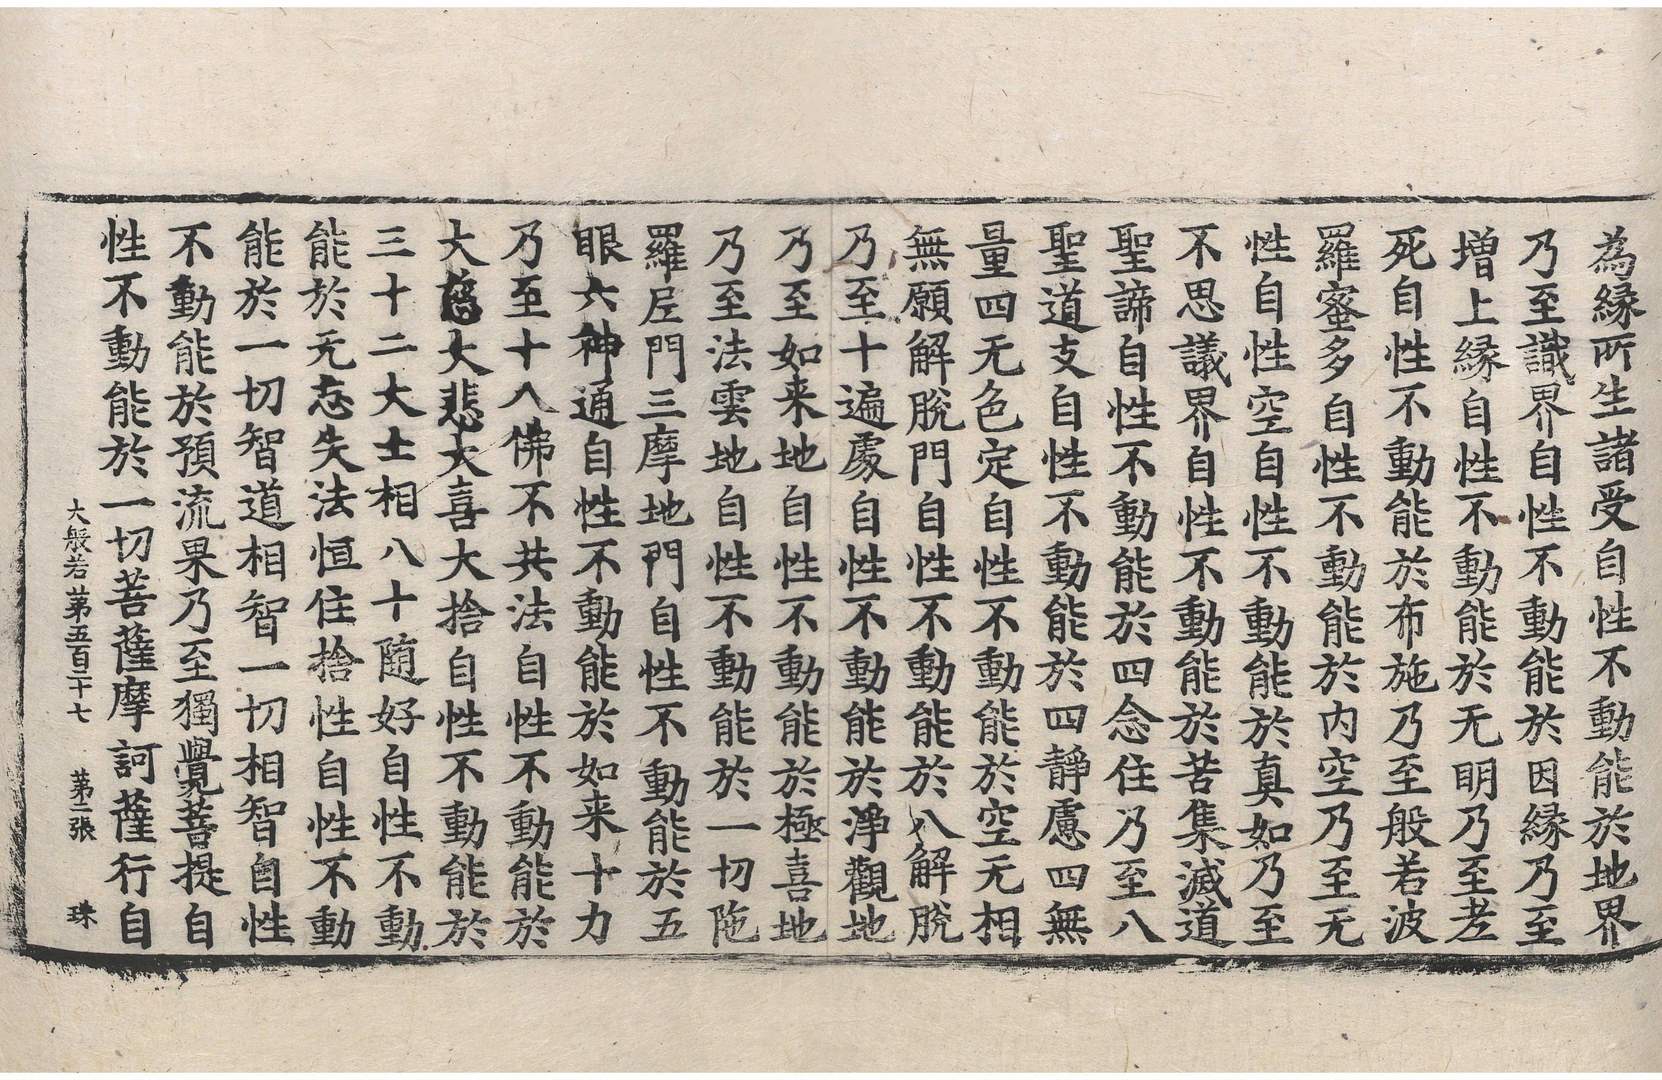 為縁所生諸受自性不動能於地界
乃至識界自性不動能於因縁乃至
増上縁自性不動能於无明乃至老
死自性不動能於布施乃至般若波
羅蜜多自性不動能於内空乃至无
性自性空自性不動能於真如乃至
不思議界自性不動能於苦集滅道
聖諦自性不動能於四念住乃至八
聖道支自性不動能於四靜慮四無
量四无色定自性不動能於空无相
無願解脫門自性不動能於八解脫
乃至十遍處自性不動能於淨觀地
乃至如来地自性不動能於極喜地
乃至法雲地自性不動能於一切陁
羅尼門三摩地門自性不動能於五
眼六神通自性不動能於如来十力
乃至十八佛不共法自性不動能於
大慈大悲大喜大捨自性不動能於
三十二大士相八十随好自性不動
能於无忘失法恒住捨性自性不動
能於一切智道相智一切相智自性
不動能於預流果乃至獨覺菩提自
性不動能於一切菩薩摩訶薩行自
大般若苐五百二十七 苐二張 珠